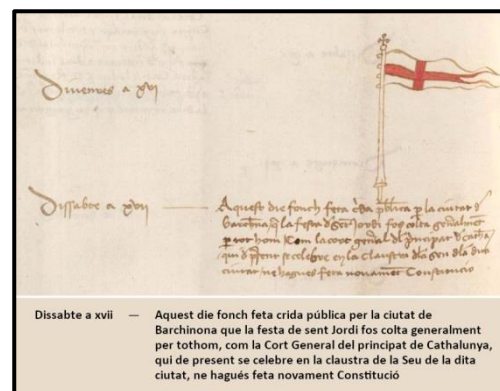 Divenres a xvi
Dissabte a xvii
Aquest die fonch feta c'da pública p la ciutat d'
Barchna q̄ la festa d' Sent Jordi fos colta gen̄alment
p tot hom Com la cort gen̄al dl p'ncipat d' Catha
qui d' p'sent se celebre en la Claustra dla Seu dla dita
ciutat ne hagues feta novament Constitucio
Dissabte a xvii — Aquest die fonch feta crida pública per la ciutat de
Barchinona que la festa de sent Jordi fos colta generalment
per tothom, com la Cort General del principat de Cathalunya,
qui de present se celebre en la claustra de la Seu de la dita
ciutat, ne hagués feta novament Constitució